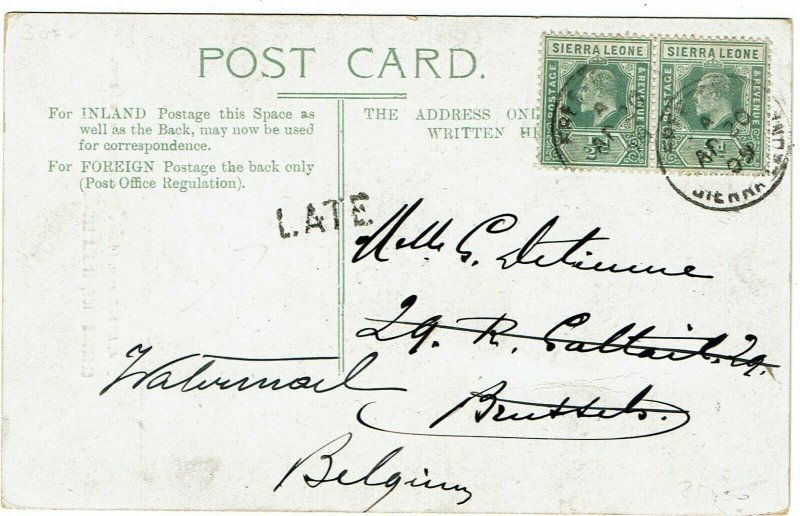 POST CARD.
For INLAND Postage this Space as
well as the Back, may now be used
for correspondence.
For FOREIGN Postage the back only
(Post Office Regulation).
THE ADDRESS ONL
WRITTEN HE
SIERRA LEONE
POSTAGE & REVENUE
SIERRA LEONE
POSTAGE & REVENUE
A
AP 20
09
SIERRA
LATE
Melle C. Detienne
29. R.
Brussels.
Watermael
Belgium